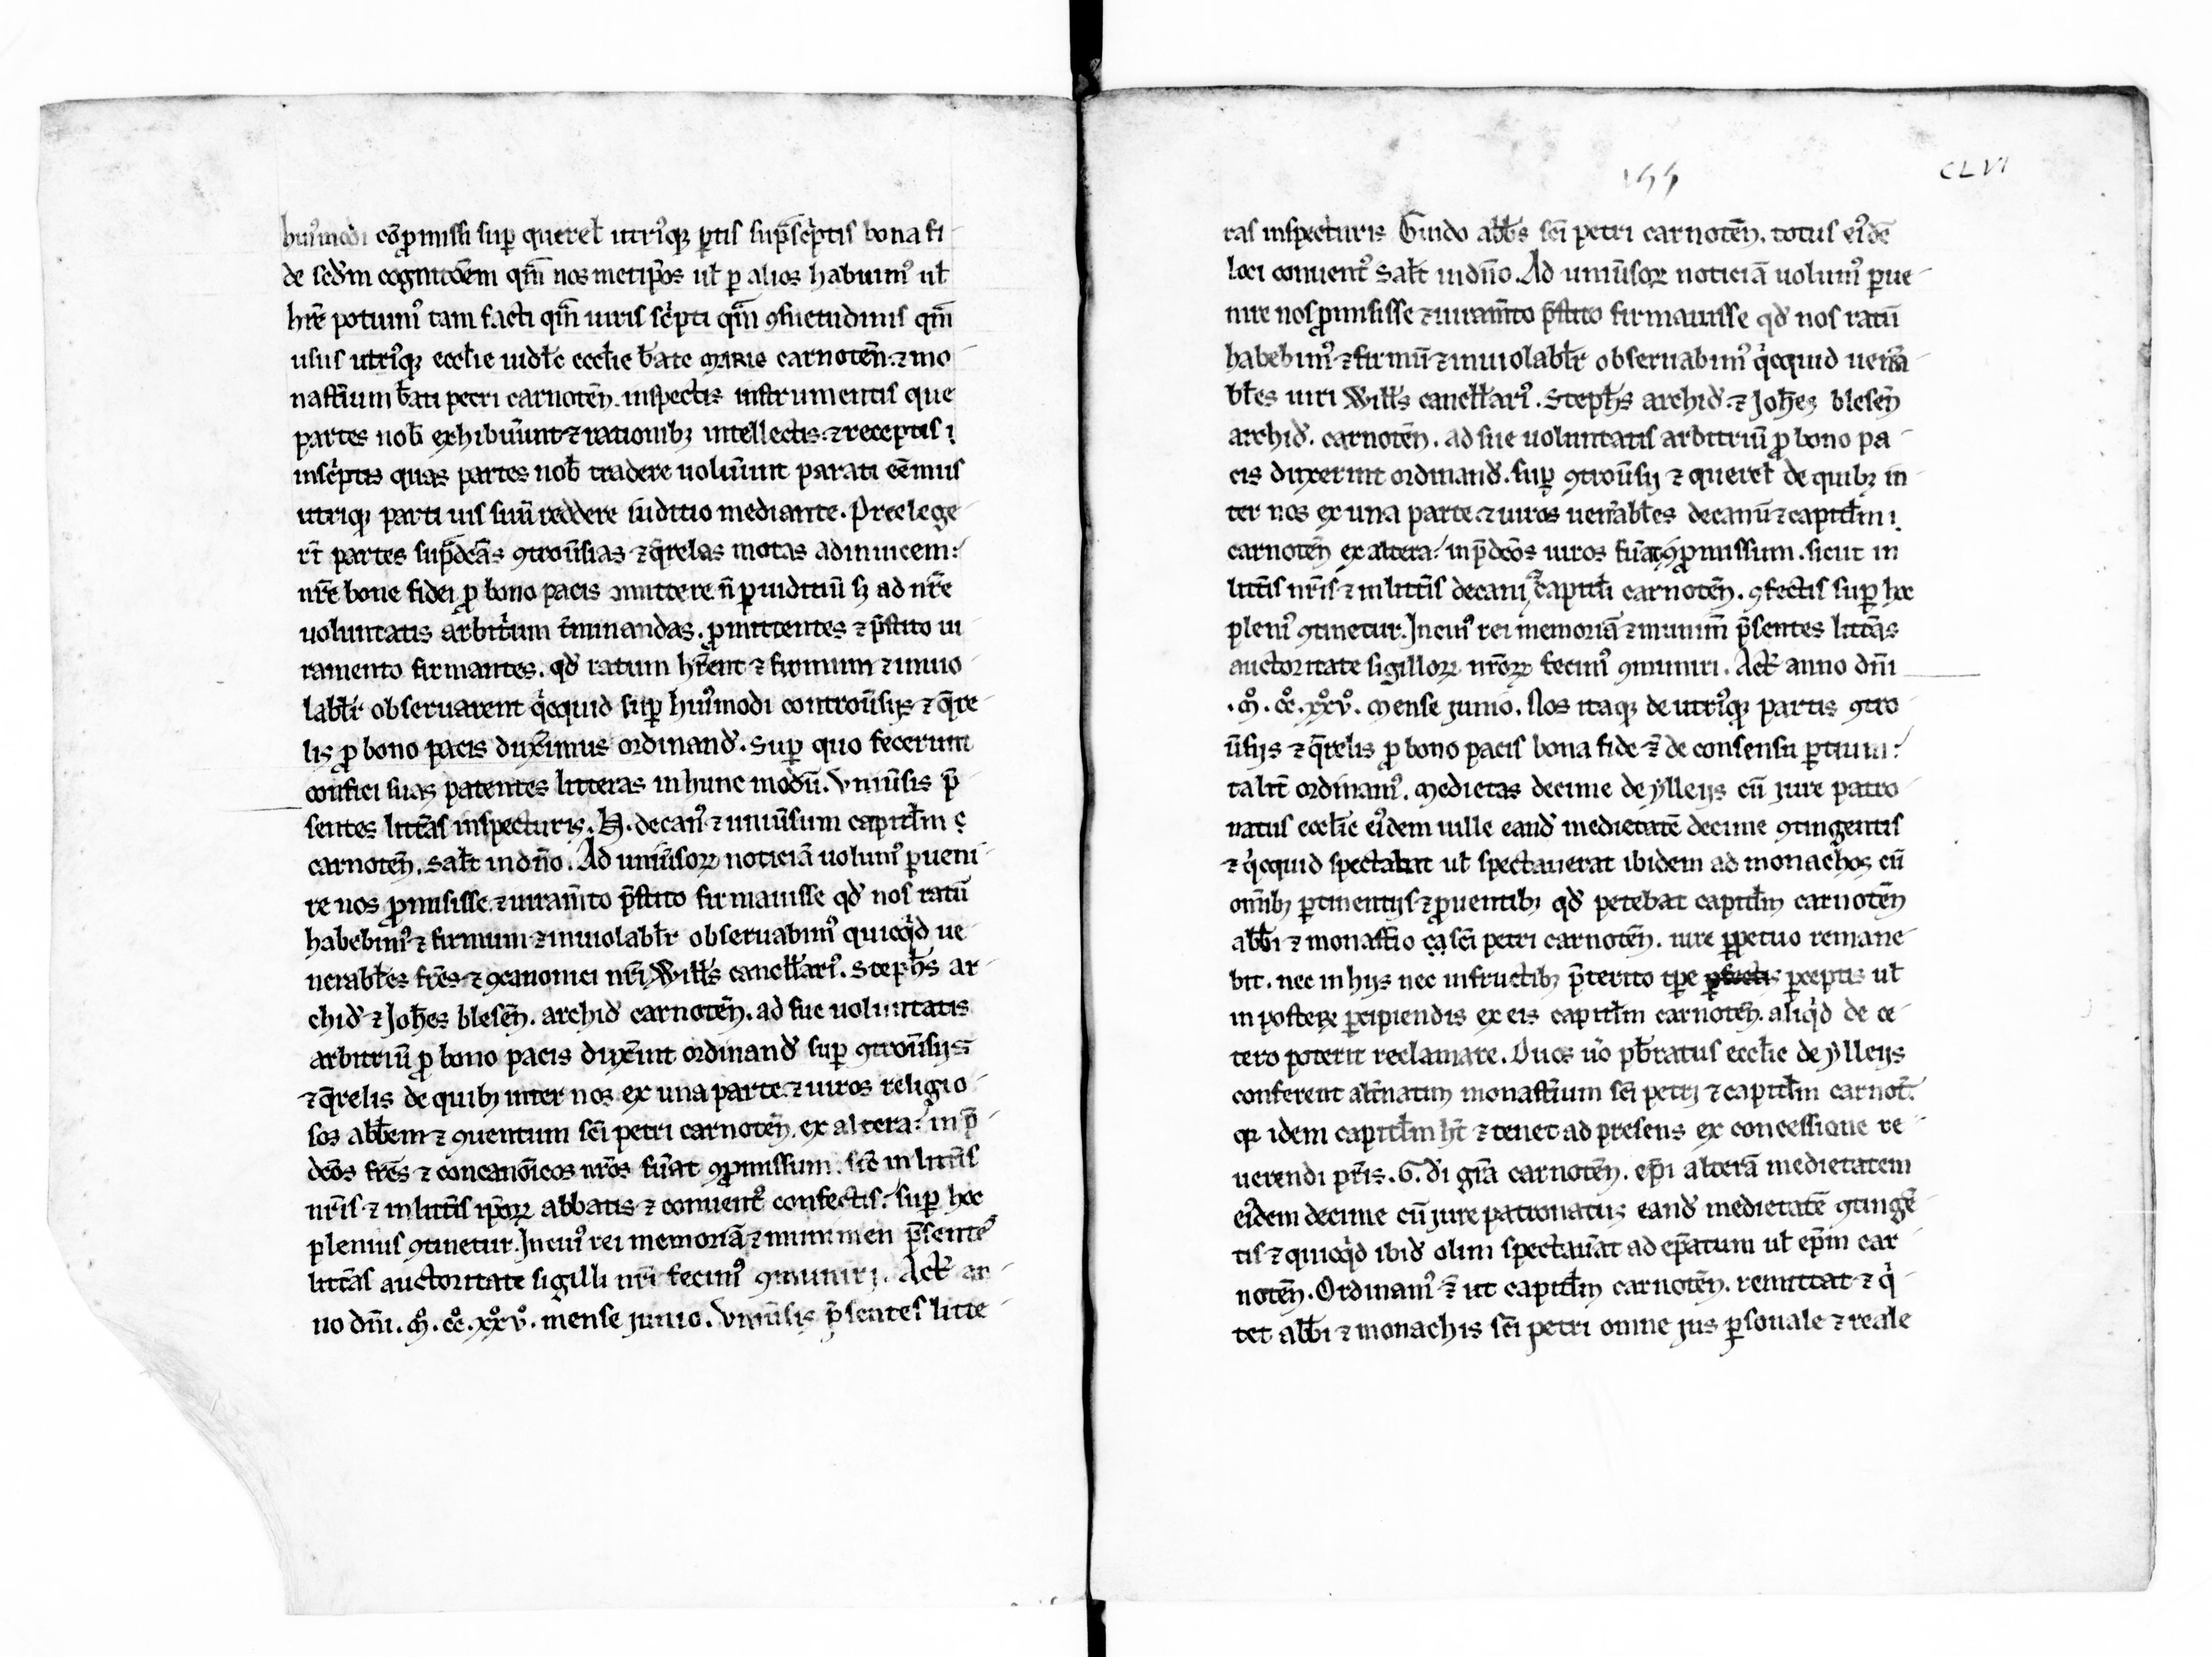 hui᷒modi cõpromissi sup̱ querel̃ utri᷒q̨ p̱tis sup̃sc̃ptis bona fi-
de scd̃m cognitõem qm̃ nos metip̃os ul̃ p̱ alios habuim᷒ ul̃
hr̃e potuim᷒ tam facti qm̃ iuris sc̃pti qm̃ ꝯsuetudinis qm̃
usus utri᷒q̨ eccl̃ie uidl̃c eccl̃ie b̃ate MARIE carnoteñ. ⁊ mo
nast̃ium b̃ati petri carnoteñ. inspectis instrumentis que
partes nob̃ exhibuer̃unt ⁊ rationib; intellectis. ⁊ receptis i
insc̃ptis quas partes nob̃ tradere uolũunt parati eẽmus
utriq̨ parti ius suũ reddere iuditio mediante. Preelege-
rt̃ partes sup̃dc̃as ꝯtrou̇̃sias ⁊ q̃relas motas adinuicem:
nr̃e bone fidei ꝓ bono pacis ꝯmittere ñ p̱ iuditiũ s; ad nr̃e
uoluntatis arbit̃um t̃minandas. ꝓmittentes ⁊ p̃stito iu
ramento firmantes. qd̃ ratum hr̃ent ⁊ firmum ⁊ inuio
labl̃r obseruarent q̃cquid sup̱ hui᷒modi controũsijs ⁊ q̃re-
lis ꝓ bono pacis dux̃imus ordinand̃. Sup̱ quo fecerunt
confici suas patentes litteras in hunc modũ. Vniũsis p̃
sentes litt̃as inspecturis. H. decan᷒ ⁊ uniũsum capitl̃m
carnoteñ. sal̃t in dño. Ad uniũsoꝝ noticiã uolum᷒ p̱ueni-
re nos ꝓmisisse. ⁊ iuram̃to p̃stito firmauisse qd̃ nos ratũ
habebim᷒ ⁊ firmum ⁊ inuiolabl̃r obseruabim᷒ quicq̃d ue-
nerabl̃es fr̃es ⁊ ꝯcanonici nr̃i Will̃s cancell̃ari᷒. Steph̃s ar-
chid̃ ⁊ Joh̃es blesen̄. archid̃ carnoteñ. ad sue uoluntatis
arbitriũ ꝓ bono pacis dux̃int ordinand̃ sup̱ ꝯtroũsijs
⁊ q̃relis de quib; inter nos ex una parte. ⁊ uiros religio-
sos abb̃em ⁊ ꝯuentum sc̃i petri carnoteñ. ex altera: in p̃-
dc̃os fr̃es ⁊ concanõicos nr̃os fũat ꝯpromissum. sic̃ in litt̃is
nr̃is ⁊ in litt̃is ip̃oꝝ abbatis ⁊ conuent᷒ confectis. sup̱ hoc
plenius ꝯtinetur. In cui᷒ rei memoriã ⁊ munimen p̃sente᷒
litt̃as auctoritate sigilli nr̃i fecim᷒ ꝯmuniri. Act̃ an-
no dñi. M̊. cc̊. xx̊v̊. mense junio. Vniũsis p̃sentes litte-
155 CLVI
ras inspecturis Guido abb̃s sc̃i petri carnoteñ. totus ei᷒dẽ
loci conuent᷒ Sal̃t in dño. Ad uniũsoꝝ noticiã uolum᷒ p̱ue-
nire nos ꝓmisisse ⁊ iuram̃to p̃stito firmauisse qd̃ nos ratũ
habebim᷒ ⁊ firmũ ⁊ inuiolabl̃r obseruabim᷒ q̃cquid uenera-
bl̃es uiri Will̃s cancell̃ari᷒. Steph̃s archid̃. ⁊ Joh̃es blesen̄
archid̃. carnoteñ. ad sue uoluntatis arbitriũ ꝓ bono pa-
cis duxerint ordinand̃. sup̱ ꝯtroũsijs ⁊ querel̃ de quib; in-
ter nos ex una parte. ⁊ uiros uen̓abl̃es decanũ ⁊ capitl̃m
carnoteñ ex altera: in p̃dc̃os uiros fũat ꝯpromissum. sicut in
litt̃is nr̃is ⁊ in litt̃is decani ⁊ capitl̃i carnoteñ. ꝯfectis sup̱ hoc
pleni᷒ ꝯtinetur. In cui᷒ rei memoriã ⁊ munim̃ p̃sentes litt̃as
auctoritate sigilloꝝ nr̃oꝝ fecim᷒ ꝯmuniri. Act̃ anno dñi
.M̊. cc̊. xx̊v̊. Mense junio. Nos itaq̨ de utri᷒q̨ partis ꝯtro-
ũsijs ⁊ q̃relis ꝓ bono pacis bona fide ⁊̃ de consensu p̱tium:
talit̃ ordinam᷒. Medietas decime de ylleijs cũ jure patro-
natus eccl̃ie ei᷒dem uille eand̃ medietatẽ decime ꝯtingentis
⁊ q̃cquid spectabat ul̃ spectauerat ibidem ad monachos cũ
om̃ib; p̱tinentijs ⁊ ꝓuentib; qd̃ petebat capitl̃m carnoteñ
abb̃i ⁊ monast̃io sc̃i petri carnoteñ. iure p̱petuo remane-
bit. nec in hijs nec in fructib; p̃terito tp̃e p̱ceptis ul̃
in postere p̱cipiendis ex eis capitl̃m carnoteñ. aliq̃d de ce-
tero poterit reclamare. Duos ũo pb̃ratus eccl̃ie de ylleijs
conferent alt̃natim monast̃ium sc̃i petri ⁊ capitl̃m carnot̃.
q̨ idem capitl̃m h̃t ⁊ tenet ad presens ex concessione re-
uerendi pr̃is. G. di gr̃a carnoteñ. ep̃i alterã medietatem
ei᷒dem decime cũ jure patronatus eand̃ medietatẽ ꝯtingẽ-
tis ⁊ quicq̃d ibid̃ olim spectauat̃ ad ep̃atum ul̃ ep̃m car-
noteñ. Ordinam᷒ ⁊̃ ut capitl̃m carnoteñ. remittat ⁊ q̃-
tet abb̃i ⁊ monachis sc̃i petri omne jus p̱sonale ⁊ reale